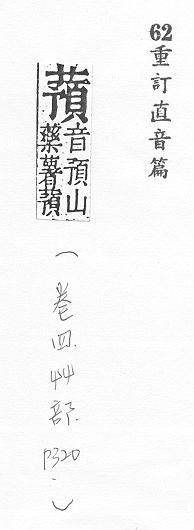 62重訂直音篇
蕷
音預山
藥薯蕷
（卷四艸部 P320.）